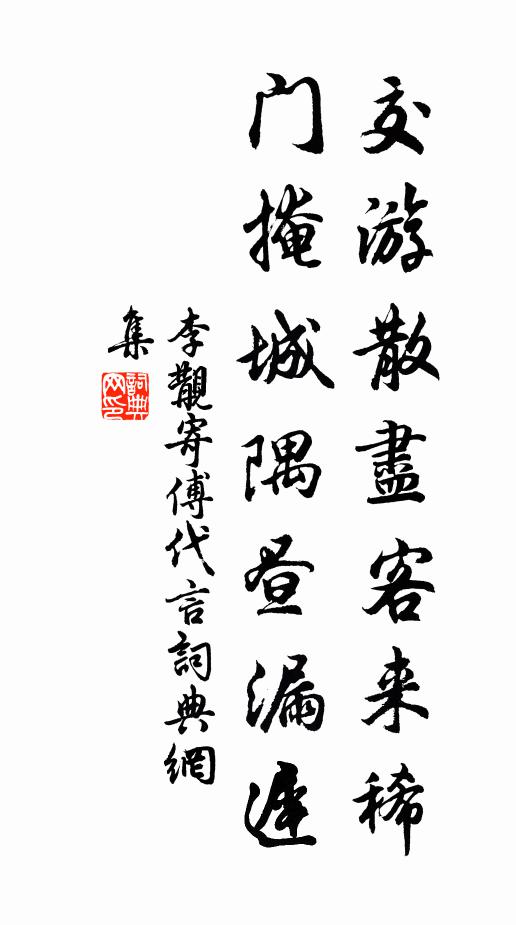 交游散盡客来稀
門掩城隅昼漏遲
李觀寄傅代言詞典網
集
詞典
网印